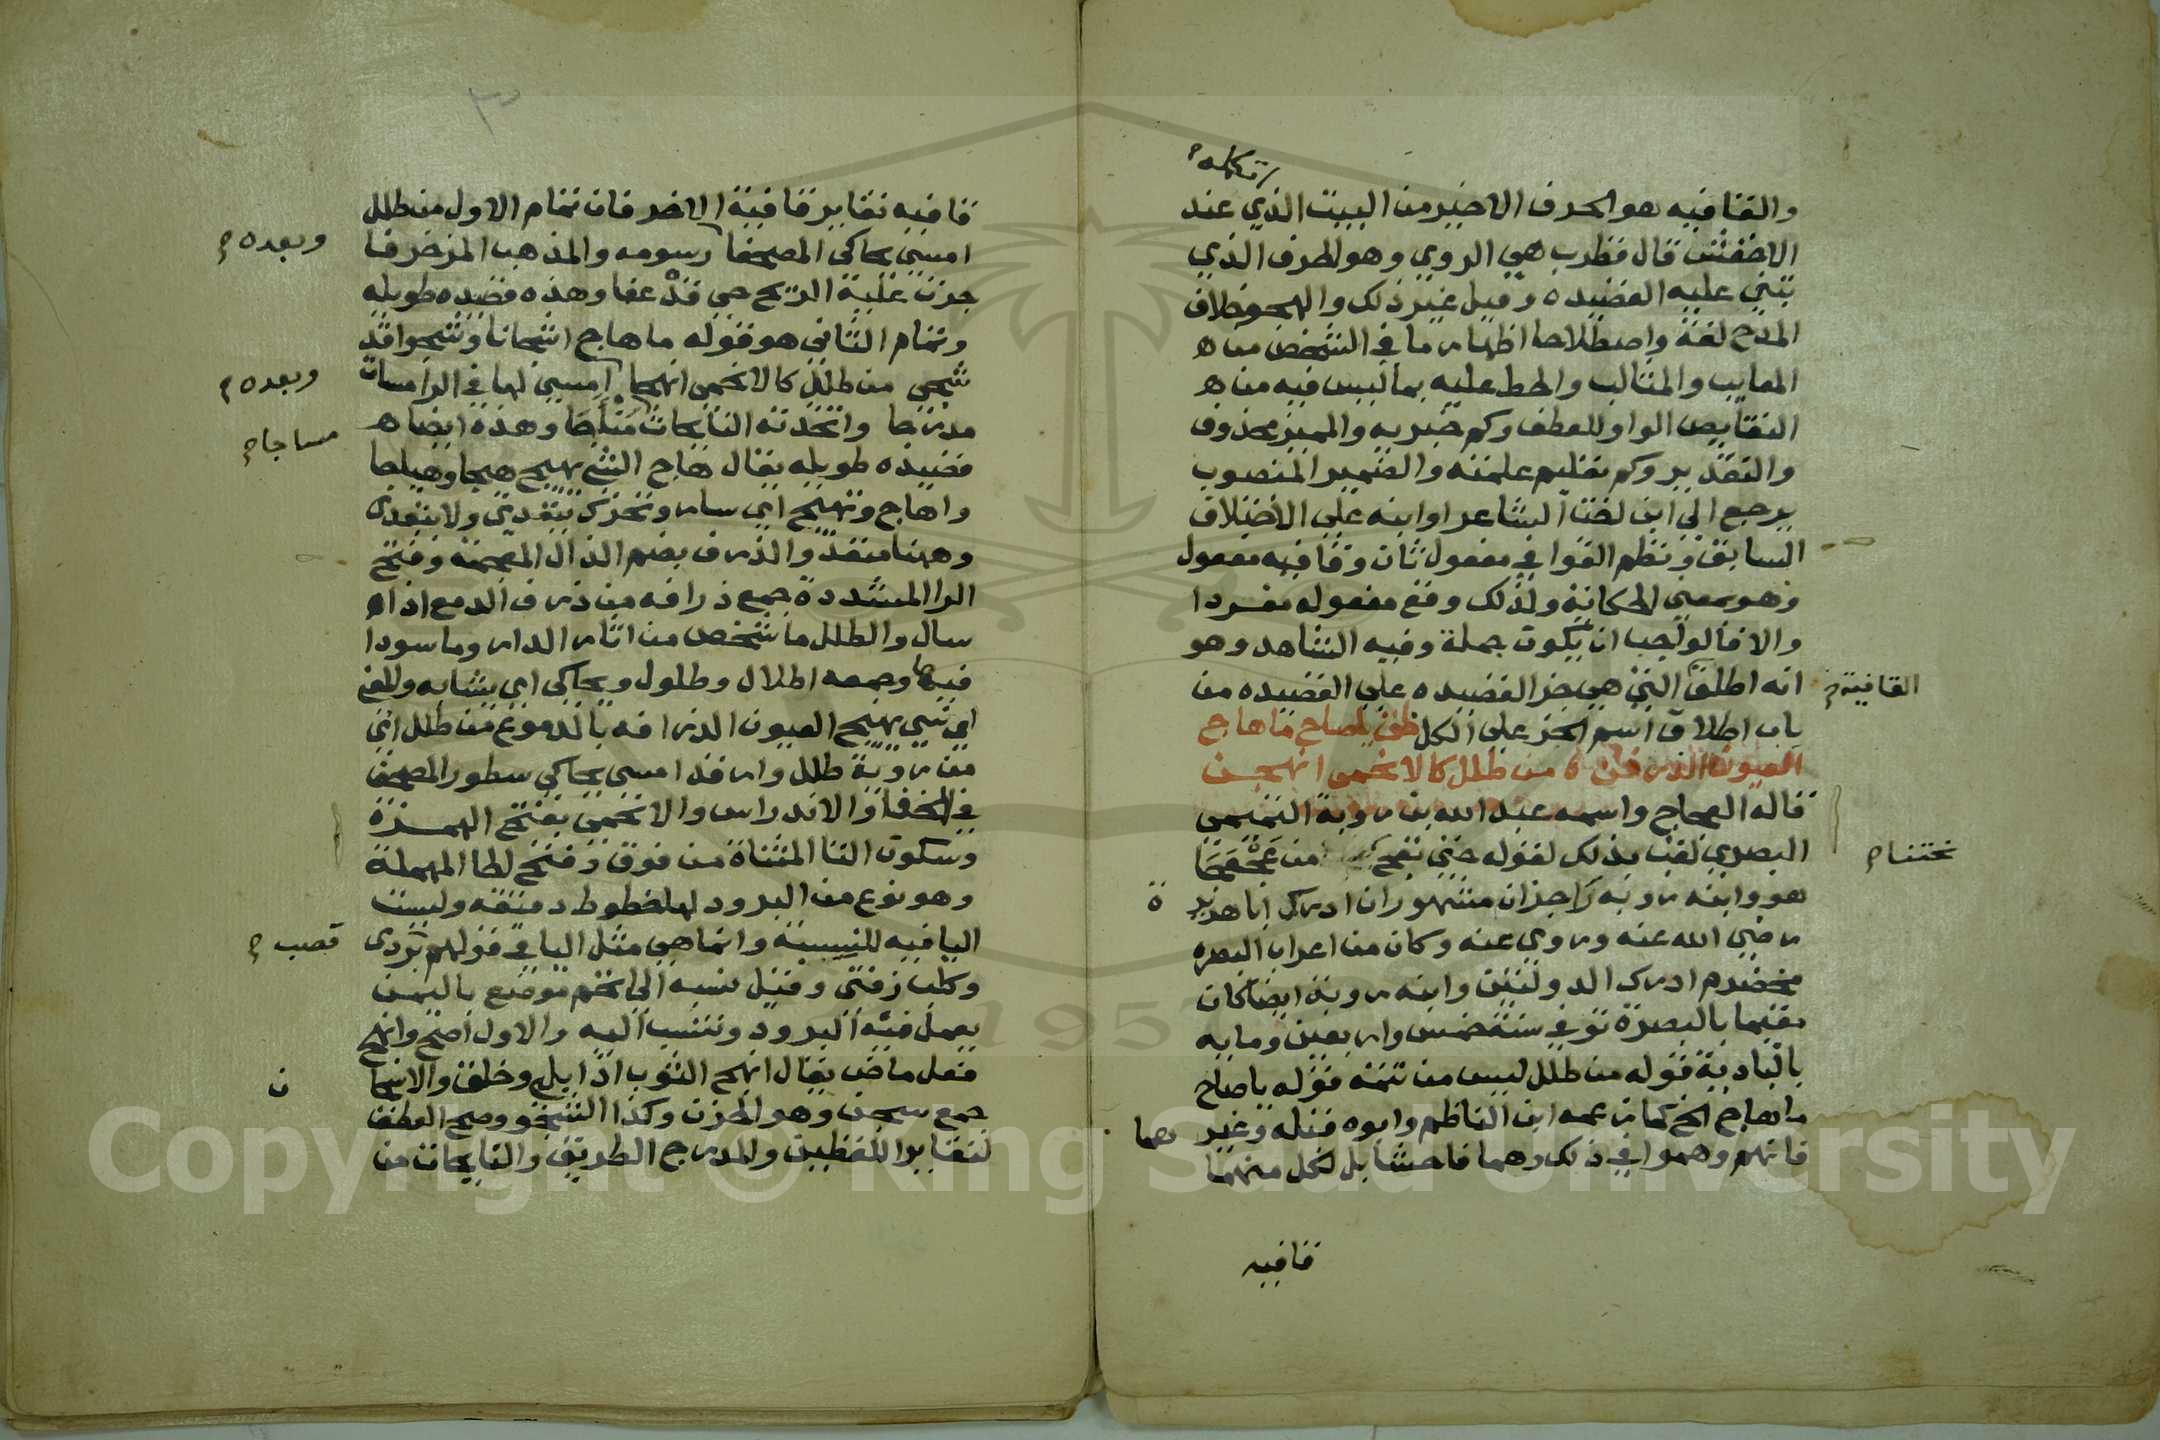 والقافيه هو الحرف الاخير من البيت الذي عند
الاخفش قال قطرب هي الروي وهو الحرف الذي
تبني عليه القصيده وقيل غير ذلك والهجو خلاف
المدح لغة واصطلاحا اظهار ما في الشخص من ه
المعايب والمثالب والحط عليه بما ليس فيه من ه
النقايص الواو للعطف وكم خبريه والمميز محذوف
والتقدير وكم تعليم علمته والضمير المنصوب
يرجع الي ابن اخت الشاعر او ابنه علي الاختلاف
السابق ونظم القوافي مفعول ثان وقافيه مفعول
وهو بمعني الحكاية ولذلك وقع مفعوله مفردا
والا فالواجب ان يكون جملة وفيه الشاهد وهو
انه اطلق التي هي جز القصيده علي القصيده من
القافية
باب اطلاق اسم الجز علي الكل ظق يا صاح ما هاج
العيون الذرفن ه من طلل كالاتحمي انهجن
قاله العجاج واسمه عبد الله بن روبة التميمي
البصري لقب بذلك لقوله حتي يعج من عجعجا
هو وابنه روبه راجزان مشهوران ادرك ابا هرير
ة
رضي الله عنه وروي عنه وكان من اعراب البصره
مخضرم ادرك الدولتين وابنه روبة ايضا كان
مقيما بالبصرة توفي سنة خمس واربعين ومايه
بالبادية قوله من طلل ليس من تتمة قوله يا صاح
ما هاج الخ كما زعمه ابن الناظم وابوه قبله وغير
هما
فانهم وهموا في ذلك وهما فاحشا بل لكل منهما
قافيه
قافيه تغاير قافية الاخر فان تمام الاول من طلل
امسي يحاكي المصحفا رسومه والمذهب المزخرفا
وبعده
جرت عليه الريح حتي قد عفا وهذه قصيده طويله
وتمام الثاني هو قوله ما هاج اشجانا وشجوا قد
شجي من طلل كالاتحمي انهجا امسي لها في الرامسات
وبعده
مدرجا واتخذته النايحات مناجا وهذه ايضا ه
قصيده طويله يقال هاج الشي يهيج هيجا وهياجا
واهاج وتهيج اي سار وتحرك يتعدي ولا يتعدي
وههنا متعد والذرف بضم الذال المعجمة وفتح
الرا المشددة جمع ذرافه من ذرف الدمع اذا ه
سال والطلل ما شخص من اثار الدار وما سودا
فيها وجمعه اطلال وطلول ويحاكي اي يشابه والمعني
اي شي يهيج العيون الذرافه بالدموع من طلل اتي
من روية طلل وار قد امسي يحاكي سطور المصحف
في الخفا والاندراس والاتحمي بفتح الهمزة
وسكون التا المثناة من فوق وفتح الحا المهملة
وهو نوع من البرود لها خطوط دقيقه وليست
اليا فيه للنسبة وانما هي مثل اليا في قولهم بردي
قصب
وكلب زفتي وقيل نسبه الي اتحم موضع باليمن
يعمل فيه البرود وتنسب اليه والاول اصح وانهج
فعل ماض يقال انهج الثوب اذا بلي وخلق والاشجا
ن
جمع شجن وهو الحزن وكذا الشجو وصح العطف
لتغاير اللفظين والمدرج الطريق والنايحات من